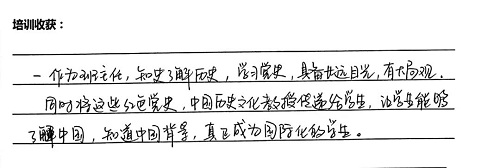 培训收获：
一作为班主任，知史了解历史，学习党史，具备长远目光，有大局观．
同时将这些红色党史，中国历史文化教授传递给学生，让学生能够
了解中国，知道中国背景，真正成为国际化的学生。